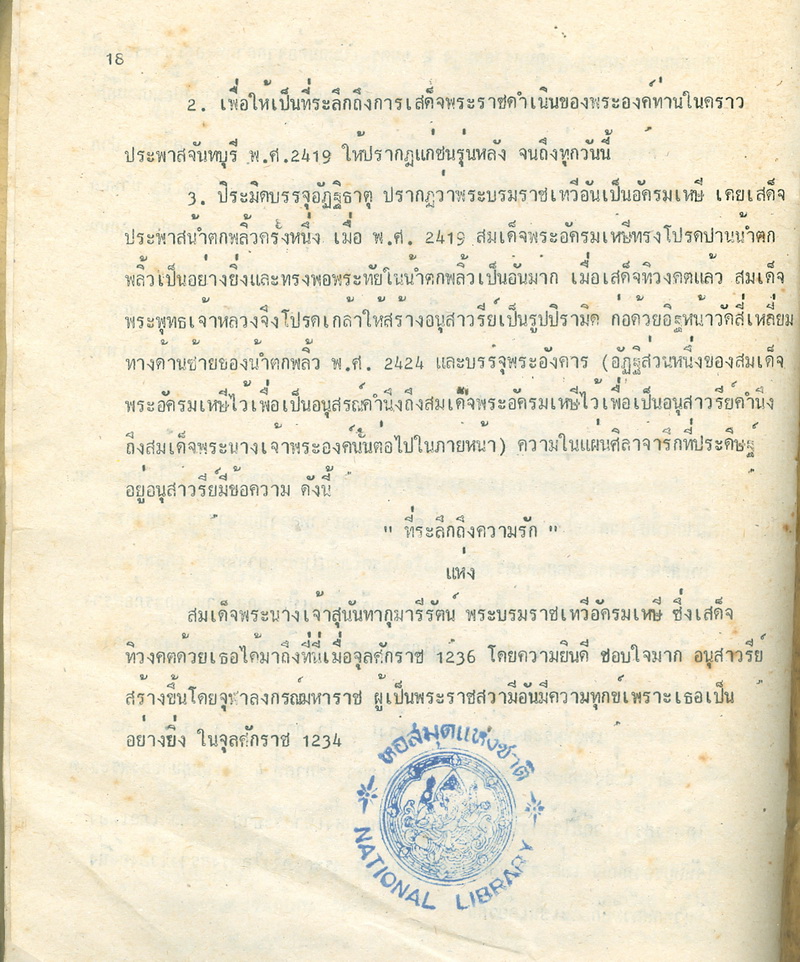 18
2. เพื่อให้เป็นที่ระลึกถึงการเสด็จพระราชดำเนินของพระองค์ท่านในคราว
ประพาสจันทบุรี พ.ศ.2419 ให้ปรากฏแก่ชนรุ่นหลัง จนถึงทุกวันนี้
3. ปิระมิดบรรจุอัฏฐิธาตุ ปรากฏว่าพระบรมราชเทวีอันเป็นอัครมเหษี เคยเสด็จ
ประพาสน้ำตกพลิ้วครั้งหนึ่ง เมื่อ พ.ศ. 2419 สมเด็จพระอัครมเหษีทรงโปรดปานน้ำตก
พลิ้วเป็นอย่างยิ่งและทรงพอพระทัยในน้ำตกพลิ้วเป็นอันมาก เมื่อเสด็จทิวงคตแล้ว สมเด็จ
พระพุทธเจ้าหลวงจึงโปรดเกล้าให้สร้างอนุสาวรีย์เป็นรูปปิรามิด ก่อด้วยอิฐหน้าวัดสี่เหลี่ยม
ทางด้านซ้ายของน้ำตกพลิ้ว พ.ศ. 2424 และบรรจุพระอังคาร (อัฏฐิส่วนหนึ่งของสมเด็จ
พระอัครมเหษีไว้เพื่อเป็นอนุสรณ์คำนึงถึงสมเด็จพระอัครมเหษีไว้เพื่อเป็นอนุสาวรีย์คำนึง
ถึงสมเด็จพระนางเจ้าพระองค์นั้นต่อไปในภายหน้า) ความในแผ่นศิลาจารึกที่ประดิษฐ์
อยู่อนุสาวรีย์มีข้อความ ดังนี้
" ที่ระลึกถึงความรัก "
แห่ง
สมเด็จพระนางเจ้าสุนันทากุมารีรัตน์ พระบรมราชเทวีอัครมเหษี ซึ่งเสด็จ
ทิวงคตด้วยเธอได้มาถึงที่นี่เมื่อจุลศักราช 1236 โดยความยินดี ชอบใจมาก อนุสาวรีย์
สร้างขึ้นโดยจุฬาลงกรณ์มหาราช ผู้เป็นพระราชสวามีอันมีความทุกข์เพราะเธอเป็น
อย่างยิ่ง ในจุลศักราช 1234
หอสมุดแห่งชาติ
NATIONAL LIBRARY